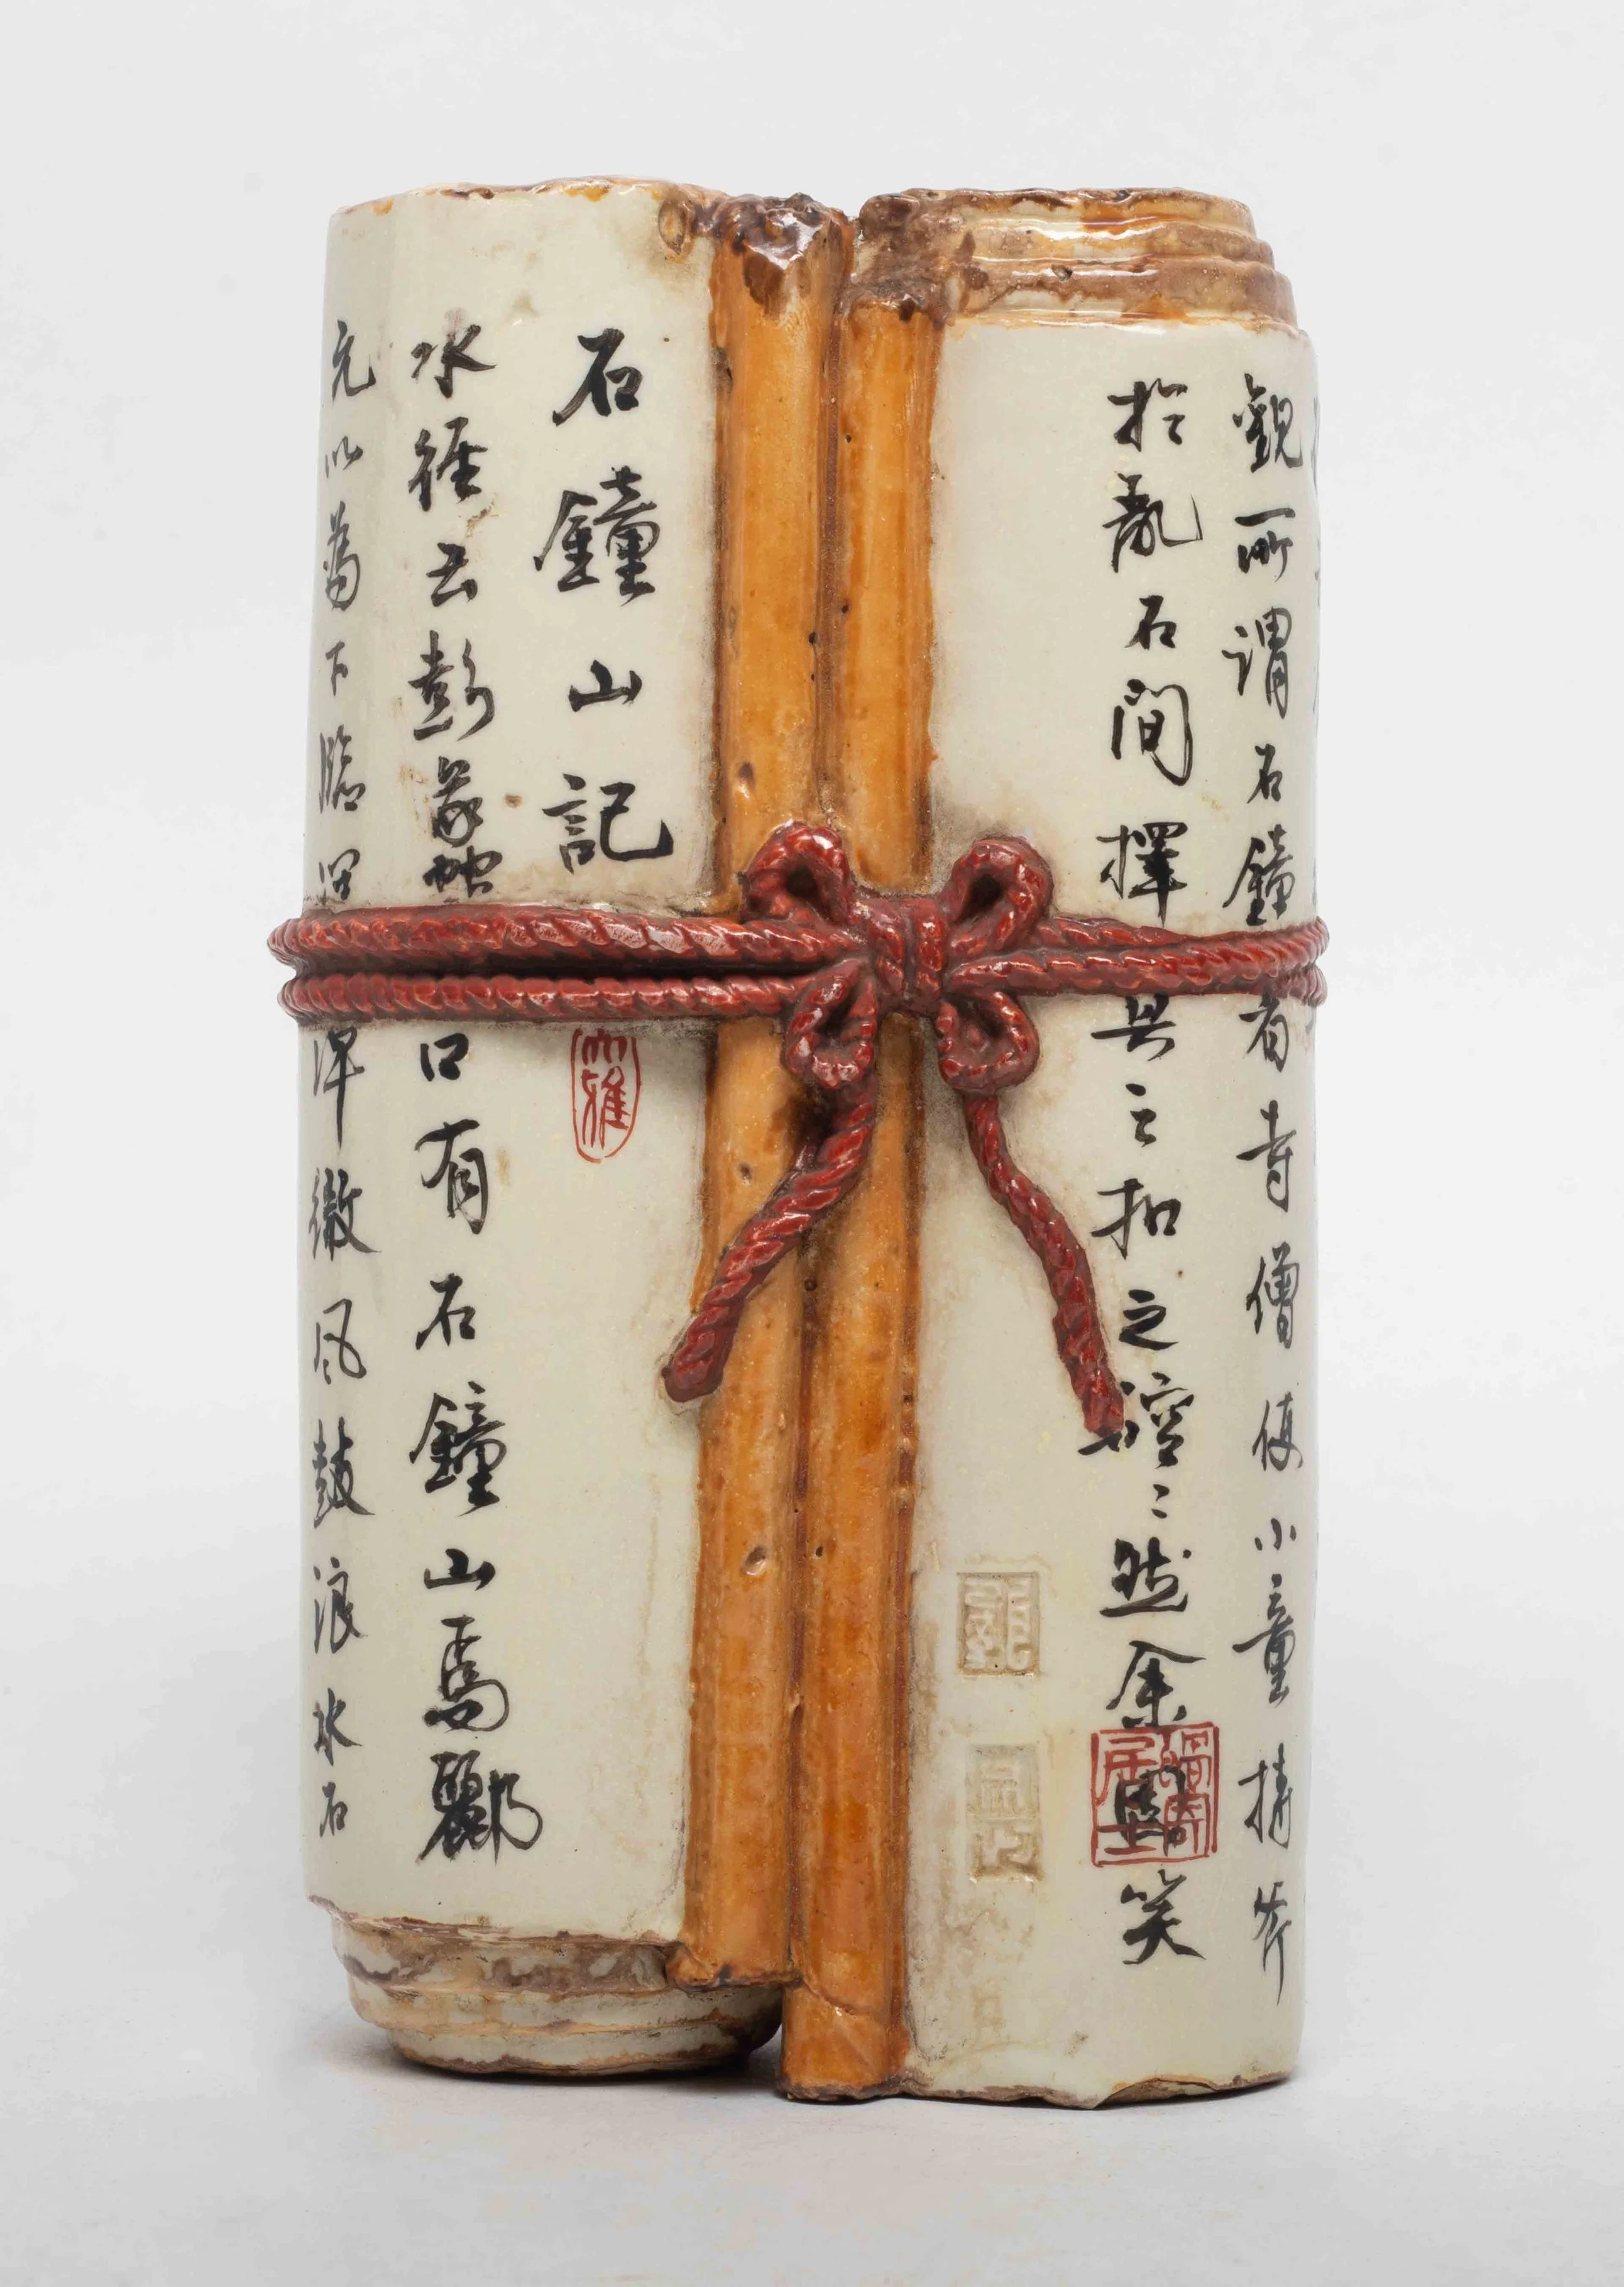 石鐘山記
水經云彭蠡口有石鐘山焉酈
元以為下臨深潭微風鼓浪水石
觀所謂石鐘者寺僧使小童持斧
於亂石間擇其一二扣之硿〻然余固笑
雅
居士